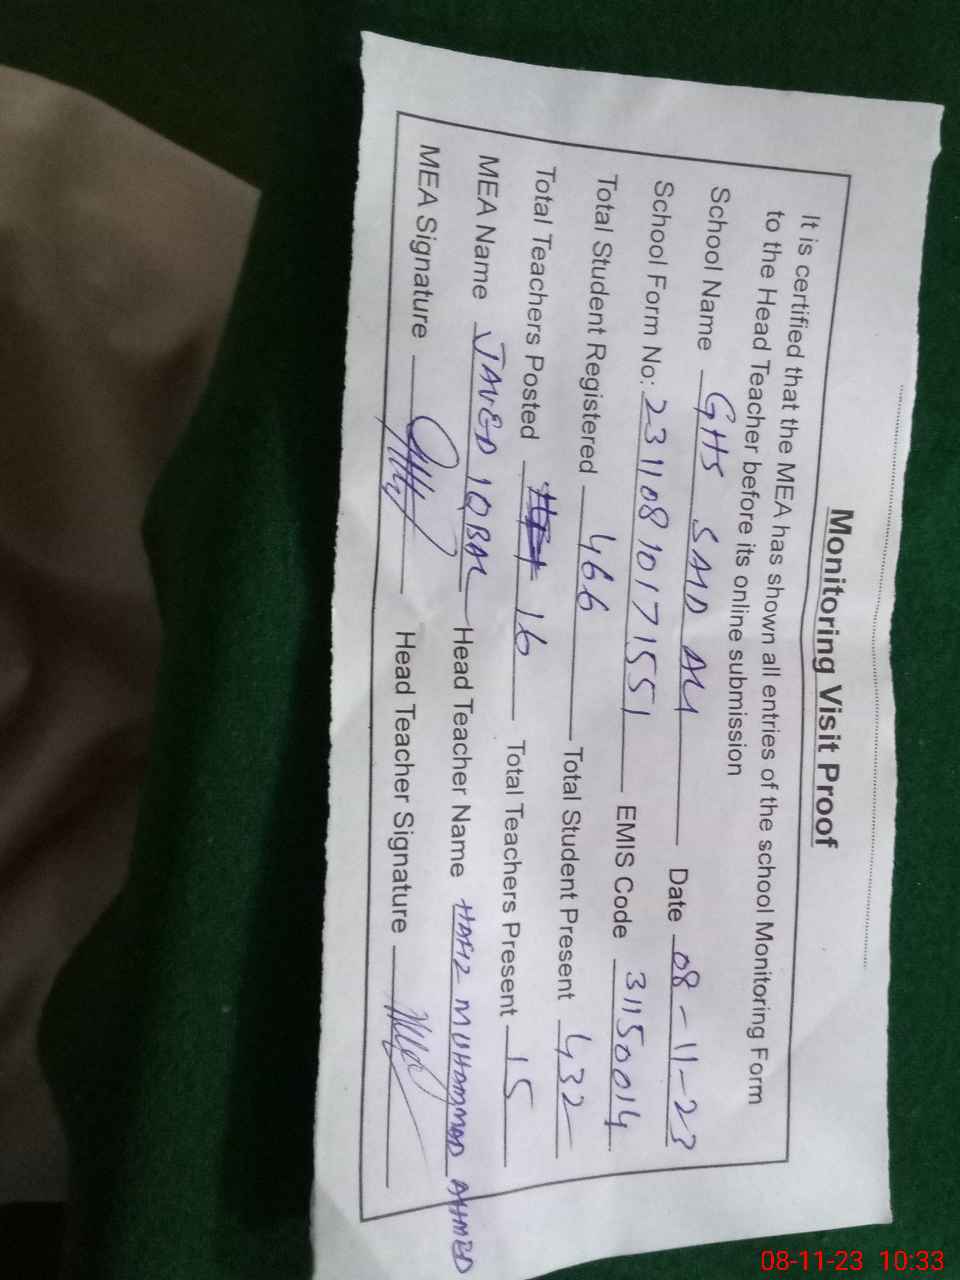 Monitoring Visit Proof
It is certified that the MEA has shown all entries of the school Monitoring Form
to the Head Teacher before its online submission
School Name GHS SAID ALI Date 08-11-23
School Form No: 23110810171551 EMIS Code 31150014
Total Student Registered 466 Total Student Present 432
Total Teachers Posted 16 Total Teachers Present 15
MEA Name JAVED IQBAL Head Teacher Name HAFIZ MUHAMMAD AHMED
MEA Signature Head Teacher Signature
08-11-23 10:33